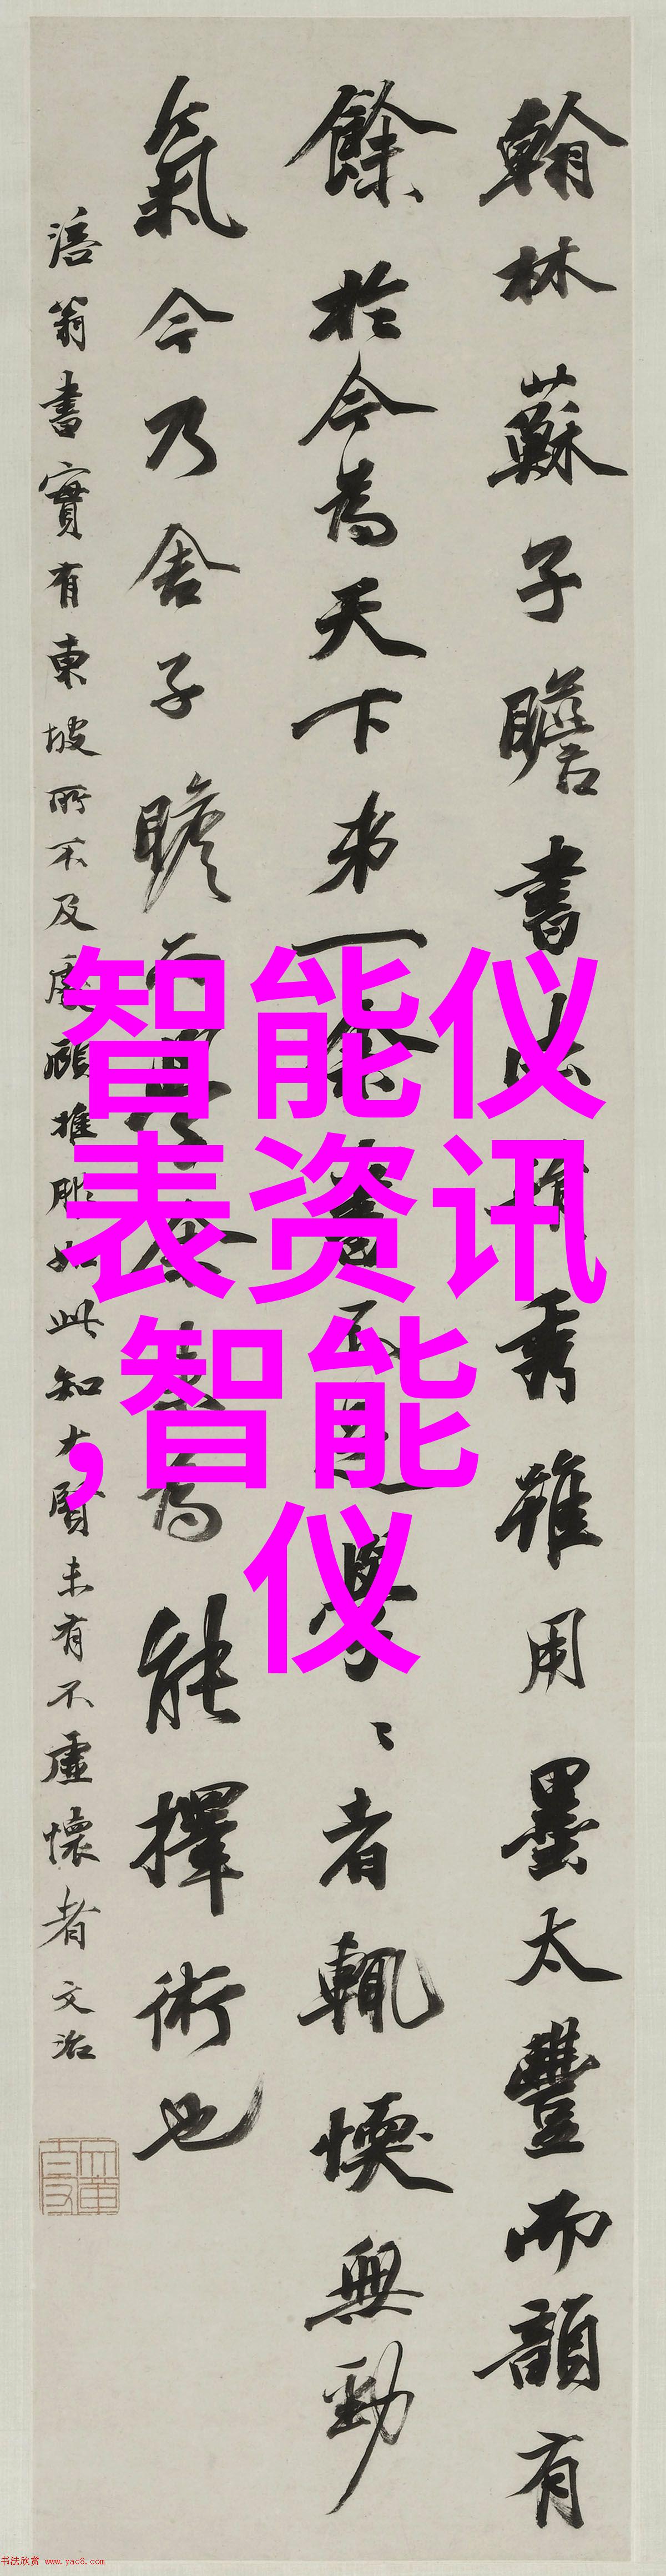 翰林蘇子瞻書法娟秀雖用墨太豐而韻有
餘於今為天下第一余書不足學〻者輒愞無勁
氣今乃舍子瞻而學余書為能擇術也
涪翁書實有東坡所不及處顧推服如此知大賢未有不虛懷者文治
智能仪
表资讯
,智能
仪
书法欣赏 www.yac8.com